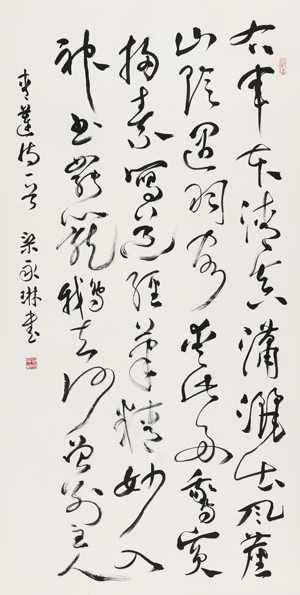 右軍本清真瀟灑出風塵
山陰遇羽客愛此好鵝賓
掃素寫道經筆精妙入
神書罷籠鵝去何曾別主人
青蓮詩一首 梁永琳書